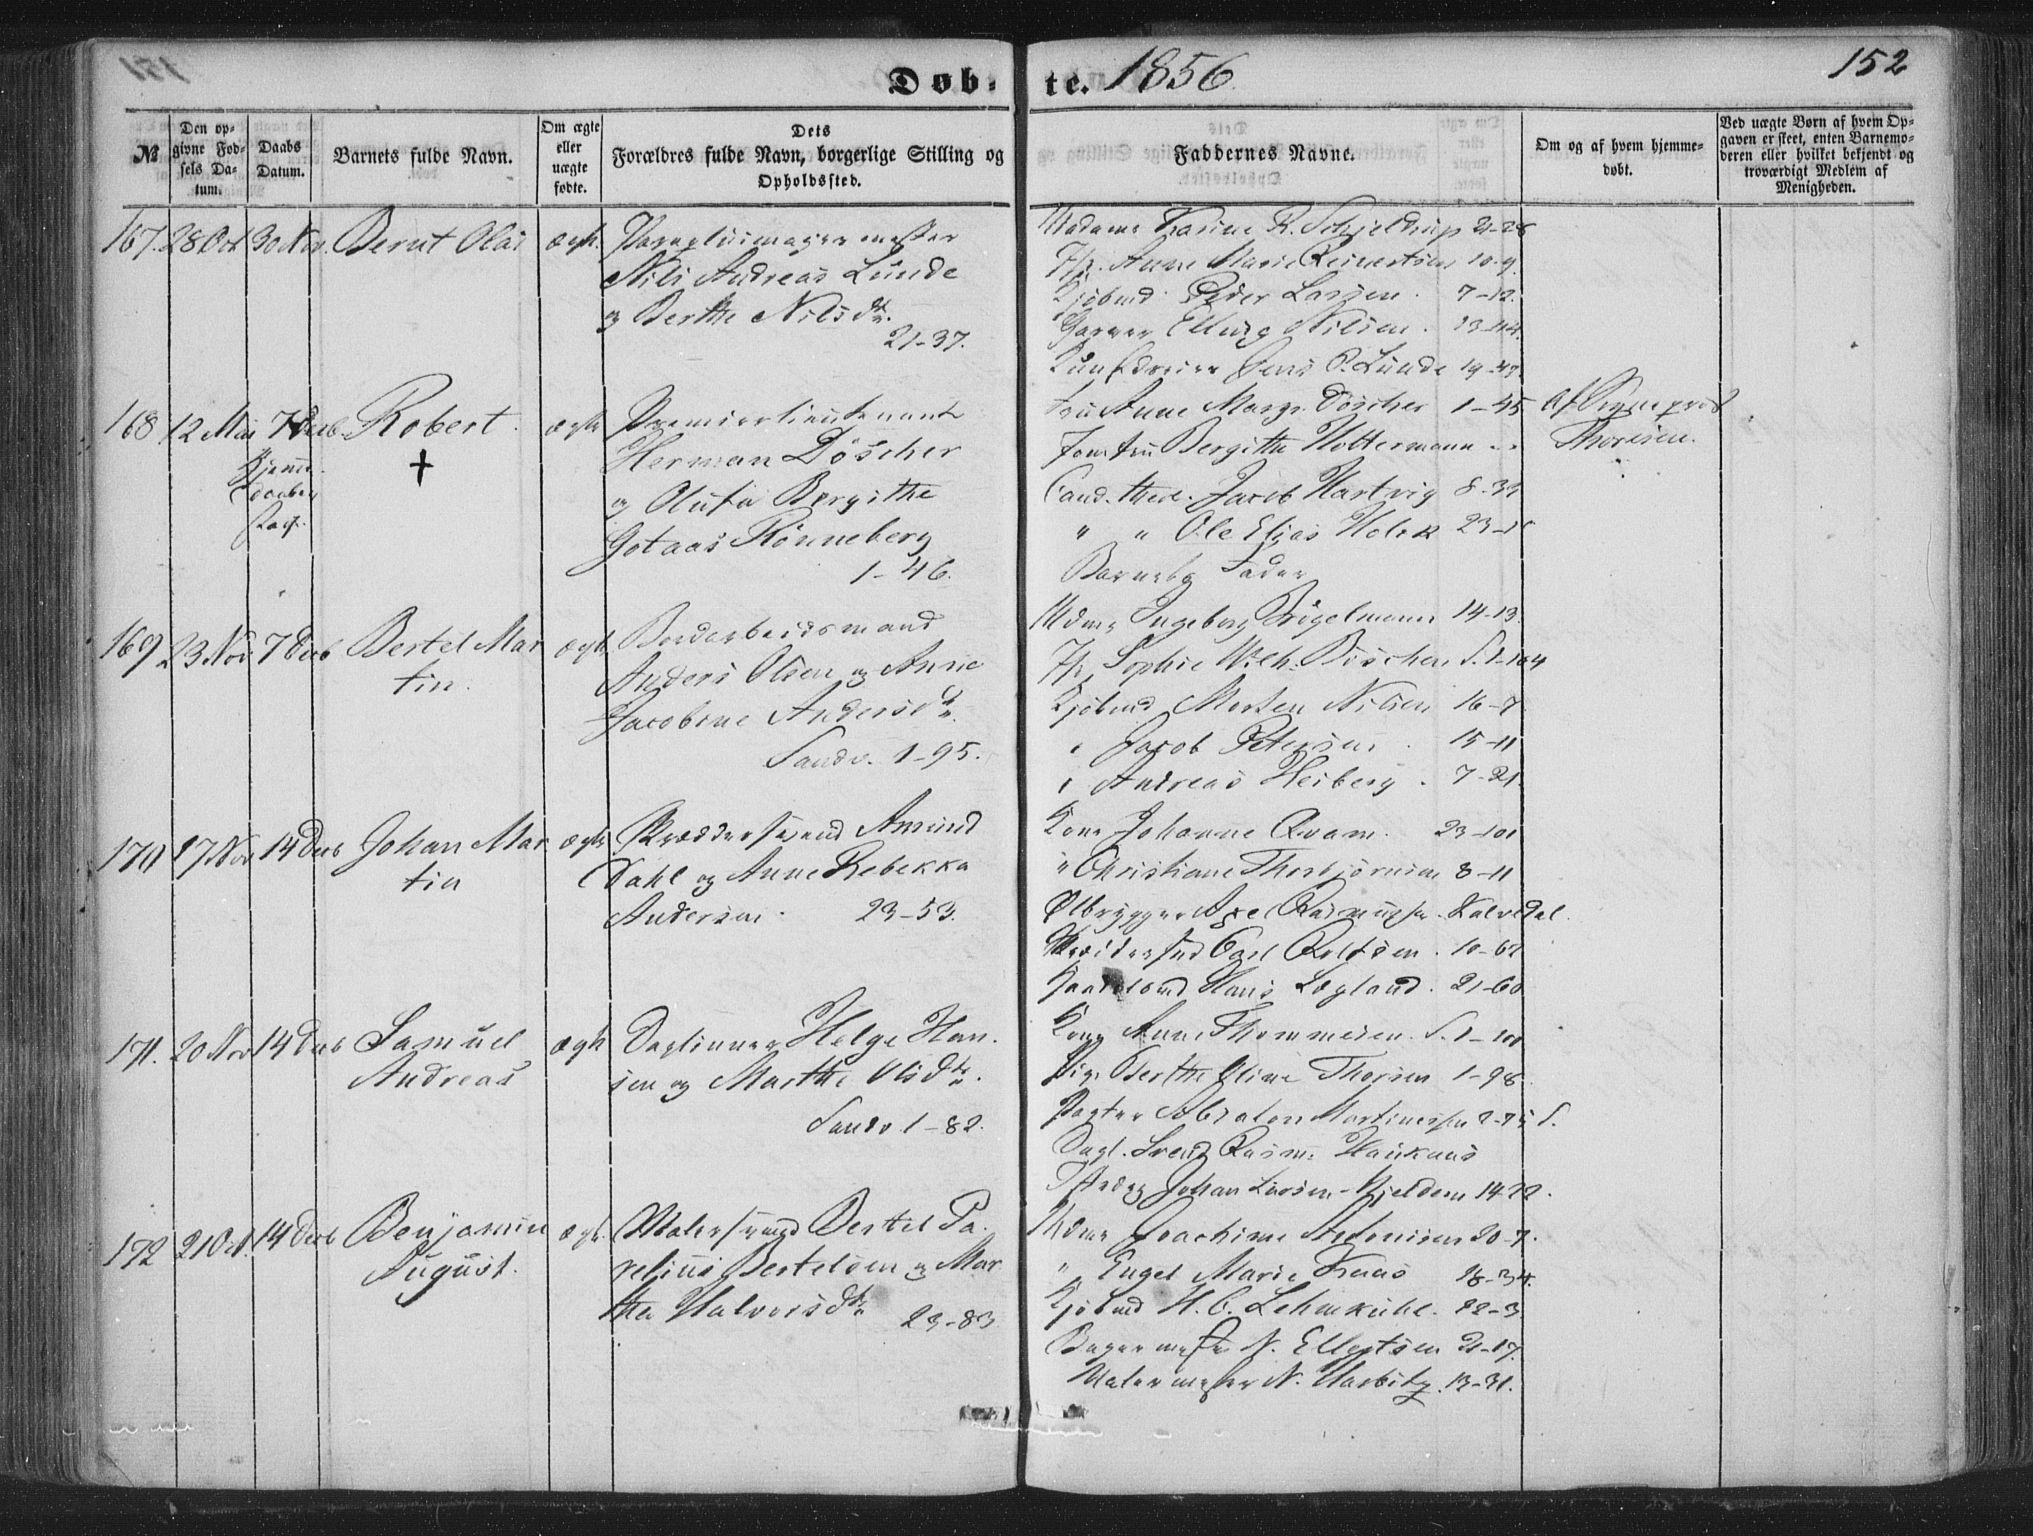 Døb- te. 1856. 152
№
Den opgivne Fødsels Datum.
Daabs Datum.
Barnets fulde Navn.
Om ægte eller uægte fødte.
Dets Forældres fulde Navn, borgerlige Stilling og Opholdssted.
Faddernes Navne.
Om og af hvem hjemmedøbt.
Ved uægte Børn af hvem Opgaven er skeet, enten Barnemoderen eller hvilket bekjendt og troværdigt Medlem af Menigheden.
167. 28 Oct 30 Nov. Bernt Olai ægte
Nils Andreas Lunde
og Berthe Nilsdtr.
21-37.
Madame Karine R. Schjeldrup 21-28
Anne Marie Reinertsen 10-9.
Kjøbmd Peder Larsen. 7-12.
Garver Elling Nilsen. 23-114.
Jens P. Lunde 19-47.
168 12 Mai 7 Decb. Robert. ægte
Premierlieutenant
Herman Döscher
og Olufa Bergithe
Gotaas Rønneberg
1-46.
Fru Anne Margr. Döscher 1-45
Jomfru Bergithe Woltermann
Cand. theol. Jacob Hartvig 8-33
" " Ole Elias Holck 23-
Barnets Fader
Af Sogneprest
Thorisen.
169 23 Nov 7 Decb Bertel Mar
tin. ægte
Bordarbeidsmand
Anders Olsen og Anne
Jacobine Andersdtr.
Sandv. 1-95.
Mdme Ingeborg Brügelmann 14-13.
Sophie Wilh. Döscher S. 1-164
Kjøbmd Morten Nilsen 16-7
" Jacob Petersen. 15-11
" Andreas Heiberg. 7-21.
170 17 Nov 14 Decb Johan Mar
tin ægte
Skræddersvend Amund
Dahl og Anne Rebekka
Andersen. 23-53.
Kone Johanne Qvam. 23-101
" Christiane Thorbjørnsen 8-11
Ølbrygger Axel Rasmussen. Kalvedal.
Skræddersvd Carl Roldsen. 10-67
Hans Løgland. 21-60
171. 20 Nov 14 Decb Samuel
Andreas ægte
Daglønner Helge Han
sen og Marthe Olsdtr.
Sandv 1-82.
Kone Anne Thommesen. S. 1-100
Pige Berthe Oline Thorsen 1-98.
Absalon Martinessen 2-75 S.
Dagl. Svend Rasm. Haukaas
Johan Larsen Kjeldsen 14-22.
172 21 Oct. 14 Decb Benjamin
August. ægte
Malersvend Bertel Pa
relius Bertelsen og Mar
the Halvorsdtr 23-83
Mdme Joachime Antonisen 20-7.
" Engel Marie Knaas 18-34.
Kjøbmd H. C. Lehmkuhl. 22-3.
Bagermester N. Ellertsen 21-17.
Malermester N. Harbitz. 13-31.